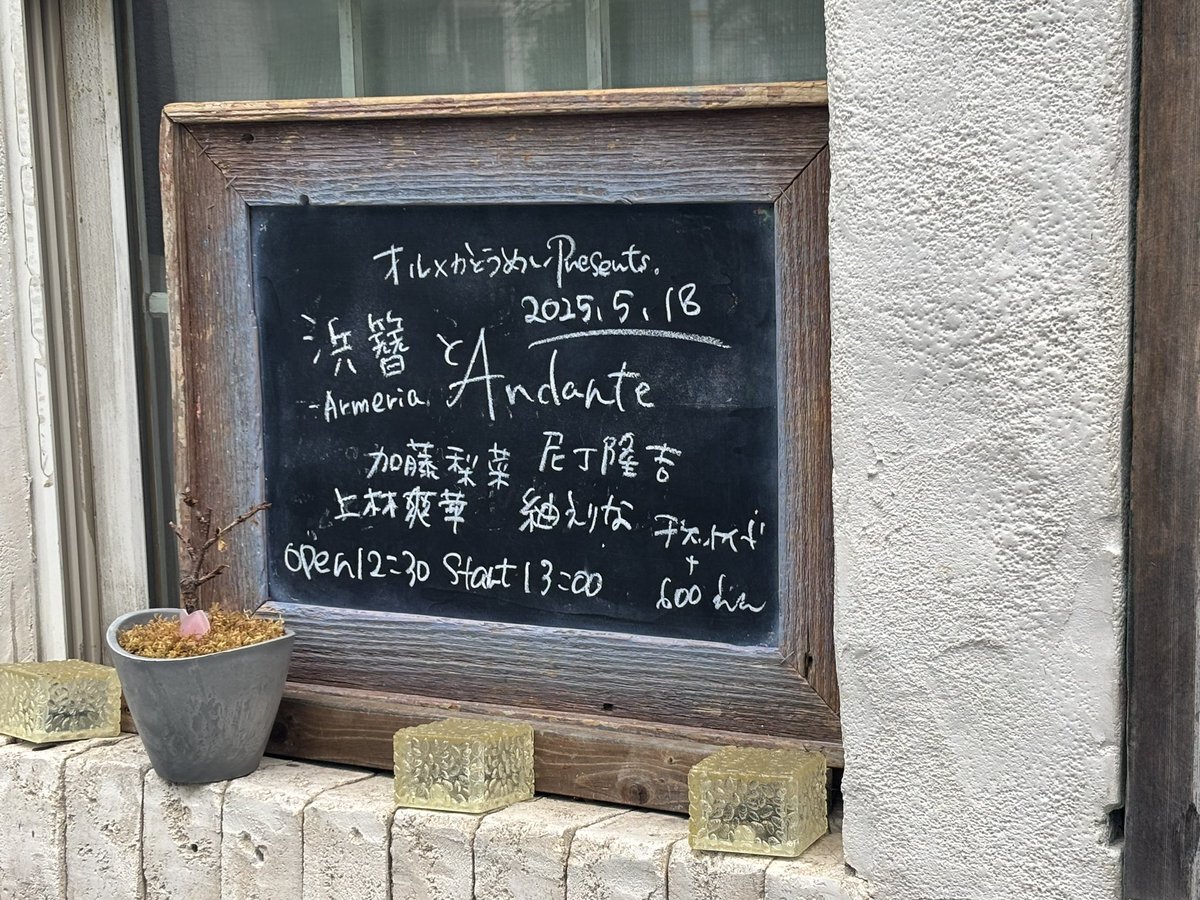 オルメカとうめいPresents.
2025.5.18
浜簪とAndante
-Armeria
加藤梨菜 尼丁隆吉
上林爽華 紬えりな
open12=30 Start13=00
+
600